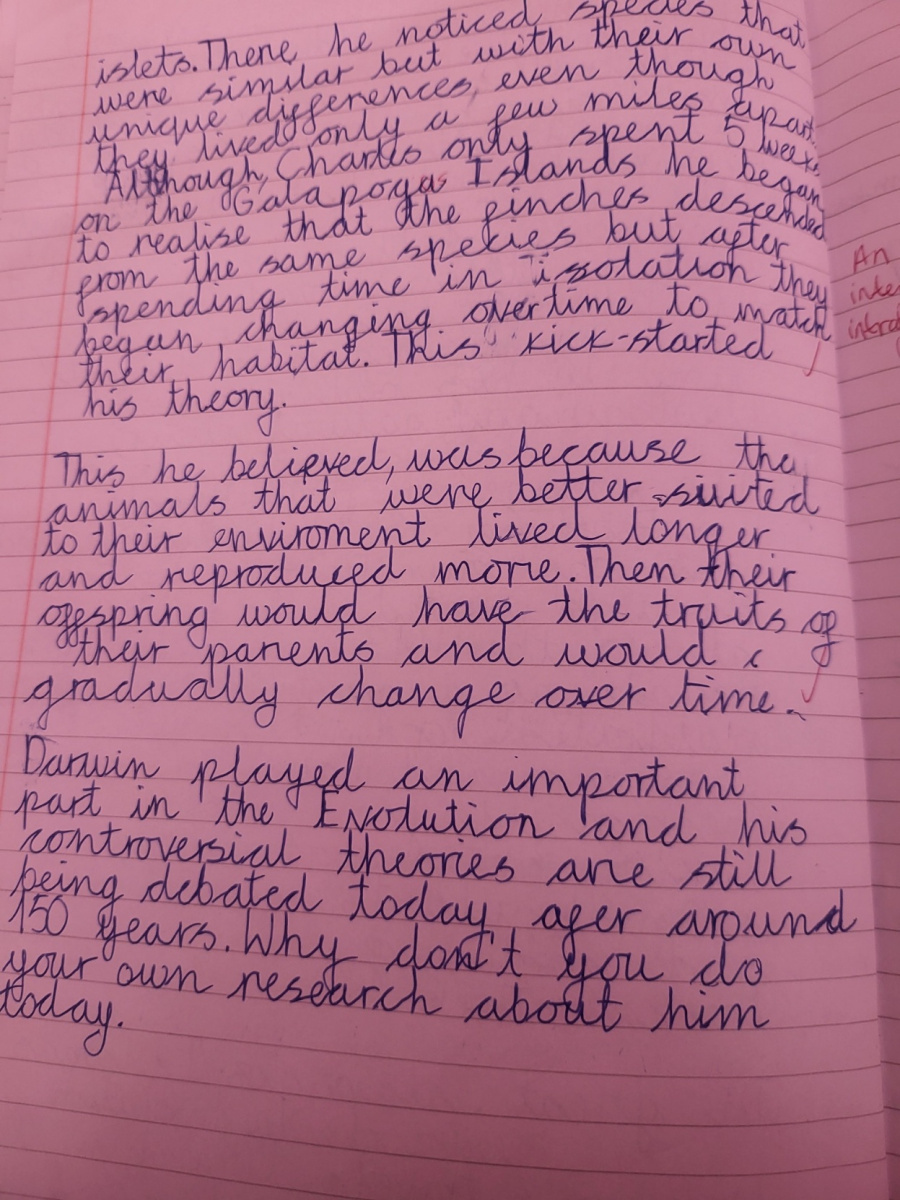 islets. There, he noticed species that
were similar but with their own
unique differences, even though
they lived only a few miles apart.
Although, Charles only spent 5 weeks
on the Galapogas Islands he began
to realise that the finches descended
from the same species but after
spending time in issolation they
began changing overtime to match
their habitat. This kick-started
his theory.
This he believed, was because the
animals that were better suited
to their enviroment lived longer
and reproduced more. Then their
offspring would have the traits of
their parents and would
gradually change over time.
Darwin played an important
part in the Evolution and his
controversial theories are still
being debated today ager around
150 years. Why don't you do
your own research about him
today.
An